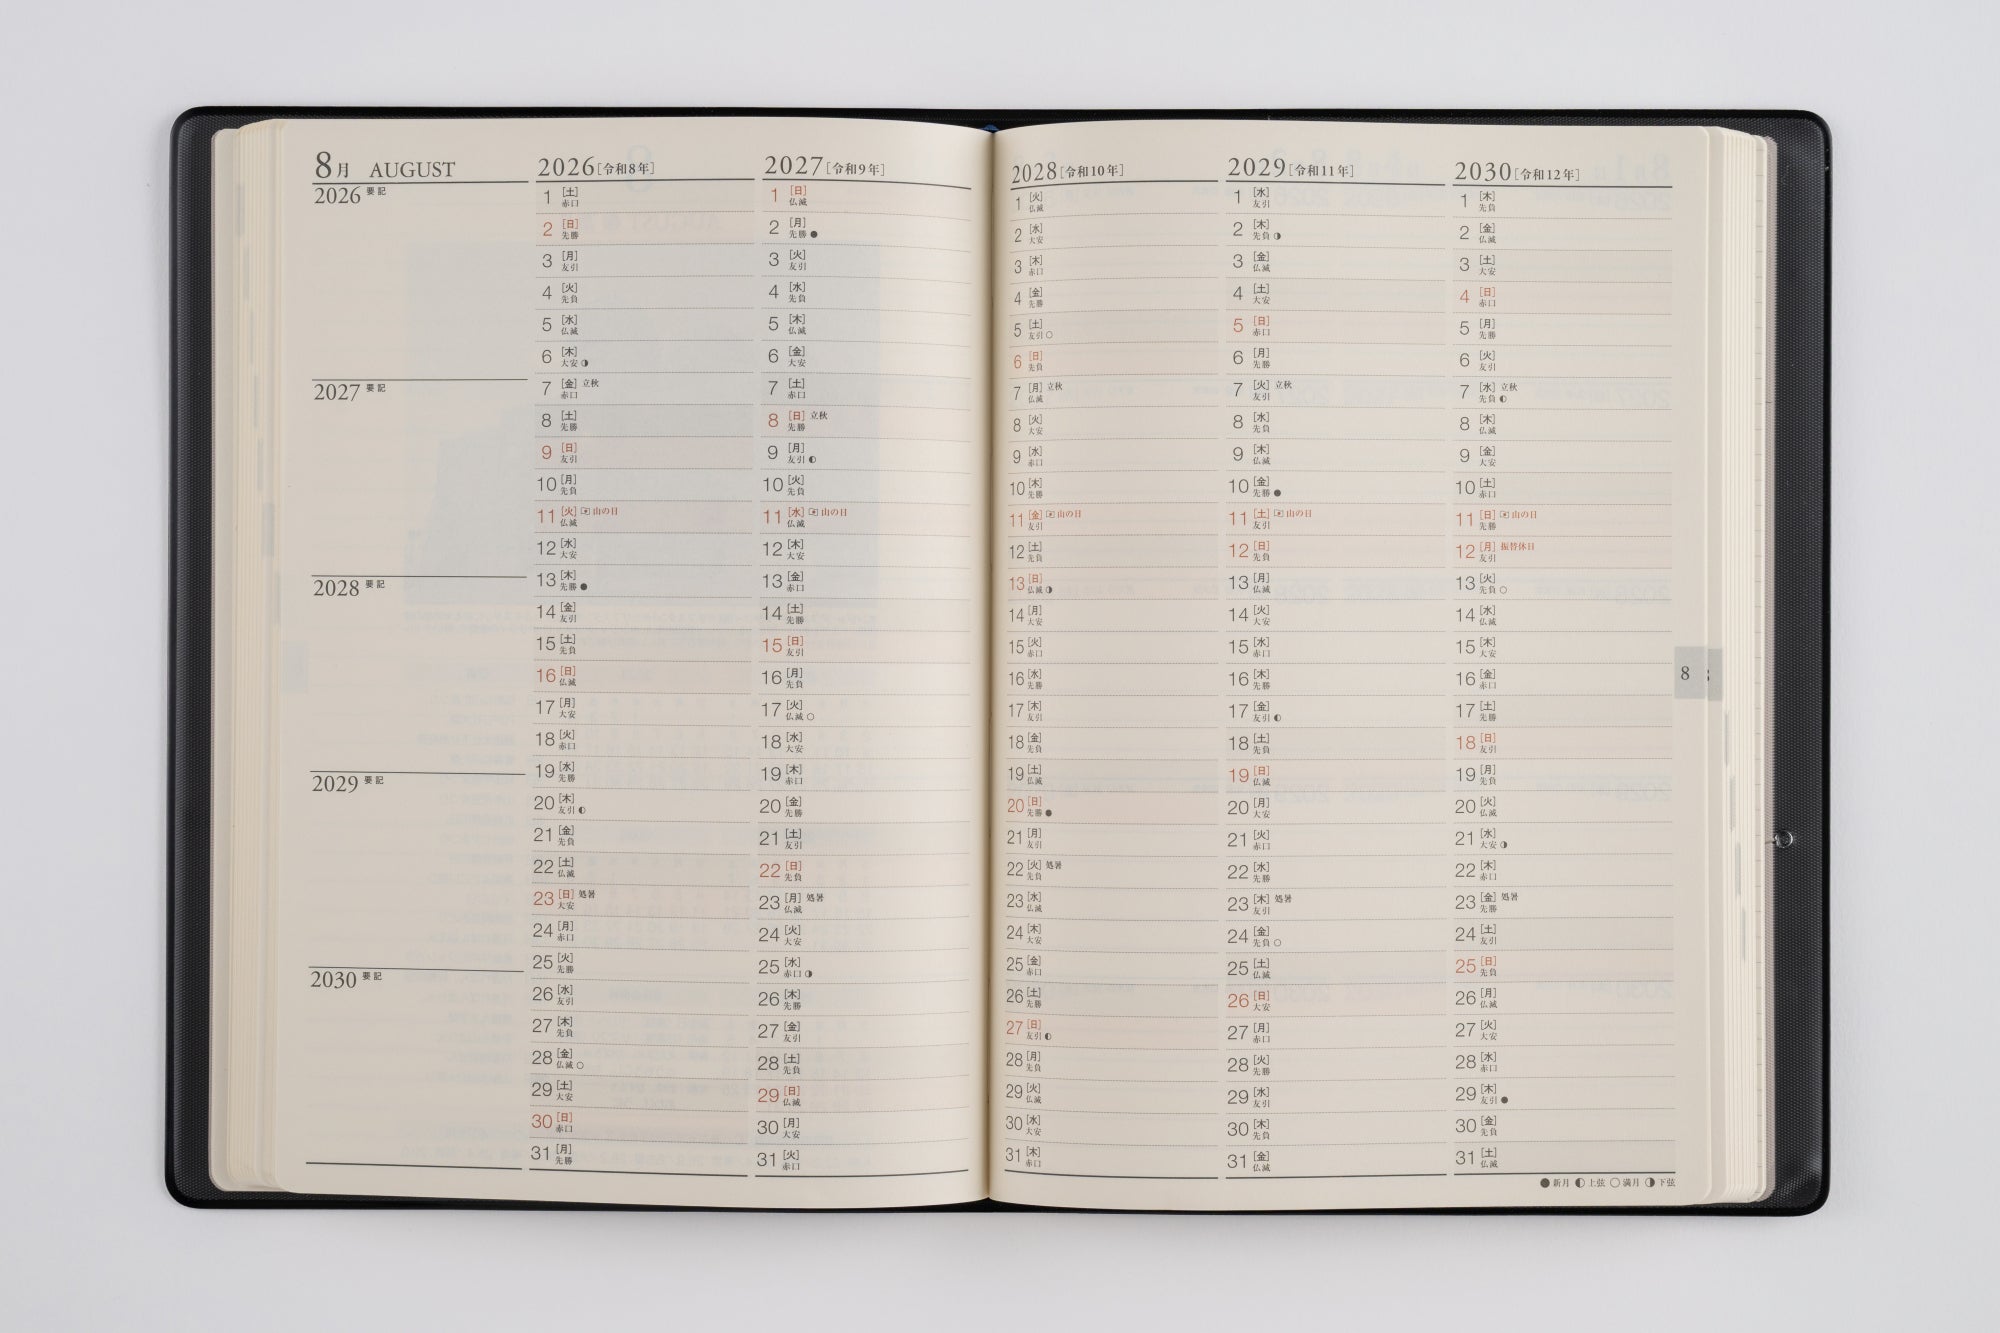 8月 AUGUST
2026 要記
2027 要記
2028 要記
2029 要記
2030 要記
2026［令和8年］
1 [土] 赤口
2 [日] 先勝
3 [月] 友引
4 [火] 先負
5 [水] 仏滅
6 [木] 大安 ◑
7 [金] 立秋 赤口
8 [土] 先勝
9 [日] 友引
10 [月] 先負
11 [火] 山の日 仏滅
12 [水] 大安
13 [木] 先勝 ●
14 [金] 友引
15 [土] 先負
16 [日] 仏滅
17 [月] 大安
18 [火] 赤口
19 [水] 先勝
20 [木] 友引 ◐
21 [金] 先負
22 [土] 仏滅
23 [日] 処暑 大安
24 [月] 赤口
25 [火] 先勝
26 [水] 友引
27 [木] 先負
28 [金] 仏滅 ○
29 [土] 大安
30 [日] 赤口
31 [月] 先勝
2027［令和9年］
1 [日] 仏滅
2 [月] 先勝 ●
3 [火] 友引
4 [水] 先負
5 [木] 仏滅
6 [金] 大安
7 [土] 赤口
8 [日] 立秋 先勝
9 [月] 友引 ◐
10 [火] 先負
11 [水] 山の日 仏滅
12 [木] 大安
13 [金] 赤口
14 [土] 先勝
15 [日] 友引
16 [月] 先負
17 [火] 仏滅 ○
18 [水] 大安
19 [木] 赤口
20 [金] 先勝
21 [土] 友引
22 [日] 先負
23 [月] 処暑 仏滅
24 [火] 大安
25 [水] 赤口 ◑
26 [木] 先勝
27 [金] 友引
28 [土] 先負
29 [日] 仏滅
30 [月] 大安
31 [火] 赤口
2028［令和10年］
1 [火] 仏滅
2 [水] 大安
3 [木] 赤口
4 [金] 先勝
5 [土] 友引 ○
6 [日] 先負
7 [月] 立秋 仏滅
8 [火] 大安
9 [水] 赤口
10 [木] 先勝
11 [金] 山の日 友引
12 [土] 先負
13 [日] 仏滅 ◑
14 [月] 大安
15 [火] 赤口
16 [水] 先勝
17 [木] 友引
18 [金] 先負
19 [土] 仏滅
20 [日] 先勝 ●
21 [月] 友引
22 [火] 処暑 先負
23 [水] 仏滅
24 [木] 大安
25 [金] 赤口
26 [土] 先勝
27 [日] 友引 ◐
28 [月] 先負
29 [火] 仏滅
30 [水] 大安
31 [木] 赤口
2029［令和11年］
1 [水] 友引
2 [木] 先負 ◑
3 [金] 仏滅
4 [土] 大安
5 [日] 赤口
6 [月] 先勝
7 [火] 立秋 友引
8 [水] 先負
9 [木] 仏滅
10 [金] 先勝 ●
11 [土] 山の日 友引
12 [日] 先負
13 [月] 仏滅
14 [火] 大安
15 [水] 赤口
16 [木] 先勝
17 [金] 友引 ◐
18 [土] 先負
19 [日] 仏滅
20 [月] 大安
21 [火] 赤口
22 [水] 先勝
23 [木] 処暑 友引
24 [金] 先負 ○
25 [土] 仏滅
26 [日] 大安
27 [月] 赤口
28 [火] 先勝
29 [水] 友引
30 [木] 先負
31 [金] 仏滅
2030［令和12年］
1 [木] 先負
2 [金] 仏滅
3 [土] 大安
4 [日] 赤口
5 [月] 先勝
6 [火] 友引
7 [水] 立秋 先負 ◐
8 [木] 仏滅
9 [金] 大安
10 [土] 赤口
11 [日] 山の日 先勝
12 [月] 振替休日 友引
13 [火] 先負 ○
14 [水] 仏滅
15 [木] 大安
16 [金] 赤口
17 [土] 先勝
18 [日] 友引
19 [月] 先負
20 [火] 仏滅
21 [水] 大安 ◑
22 [木] 赤口
23 [金] 処暑 先勝
24 [土] 友引
25 [日] 先負
26 [月] 仏滅
27 [火] 大安
28 [水] 赤口
29 [木] 友引 ●
30 [金] 先負
31 [土] 仏滅
●新月 ◐上弦 ○満月 ◑下弦
8